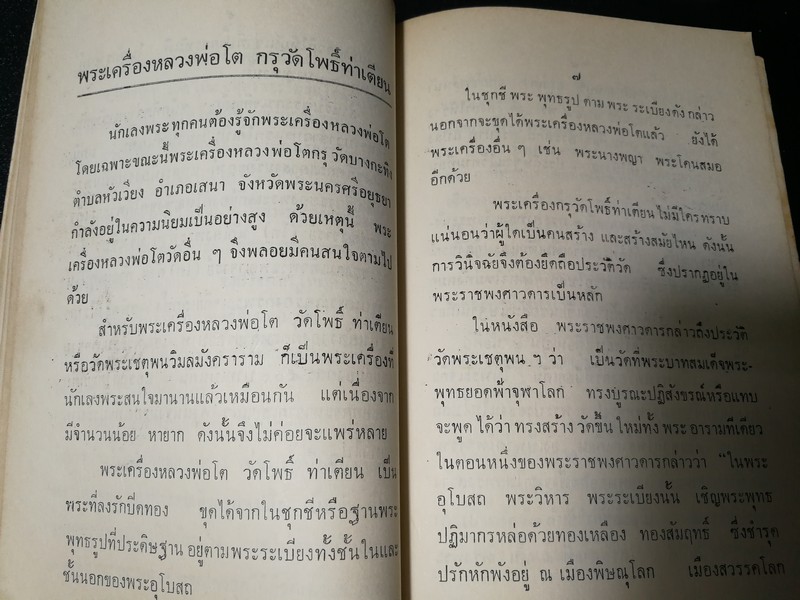 พระเครื่องหลวงพ่อโต กรุวัดโพธิ์ท่าเตียน
นักเลงพระทุกคนต้องรู้จักพระเครื่องหลวงพ่อโต
โดยเฉพาะขณะนี้พระเครื่องหลวงพ่อโตกรุวัดบางกะทิง
ตำบลหัวเวียง อำเภอเสนา จังหวัดพระนครศรีอยุธยา
กำลังอยู่ในความนิยมเป็นอย่างสูง ด้วยเหตุนี้ พระ
เครื่องหลวงพ่อโตวัดอื่น ๆ จึงพลอยมีคนสนใจตามไป
ด้วย
สำหรับพระเครื่องหลวงพ่อโต วัดโพธิ์ ท่าเตียน
หรือวัดพระเชตุพนวิมลมังคราราม ก็เป็นพระเครื่องที่
นักเลงพระสนใจมานานแล้วเหมือนกัน แต่เนื่องจาก
มีจำนวนน้อย หายาก ดังนั้นจึงไม่ค่อยจะแพร่หลาย
พระเครื่องหลวงพ่อโต วัดโพธิ์ ท่าเตียน เป็น
พระที่ลงรักปิดทอง ขุดได้จากในชุกชีหรือฐานพระ
พุทธรูปที่ประดิษฐาน อยู่ตามพระระเบียงทั้งชั้นในและ
ชั้นนอกของพระอุโบสถ
๗
ในชุกชี พระ พุทธรูป ตาม พระ ระเบียงดัง กล่าว
นอกจากจะขุดได้พระเครื่องหลวงพ่อโตแล้ว ยังได้
พระเครื่องอื่น ๆ เช่น พระนางพญา พระโคนสมอ
อีกด้วย
พระเครื่องกรุวัดโพธิ์ท่าเตียน ไม่มีใครทราบ
แน่นอนว่าผู้ใดเป็นคนสร้าง และสร้างสมัยไหน ดังนั้น
การวินิจฉัยจึงต้องยึดถือประวัติวัด ซึ่งปรากฏอยู่ใน
พระราชพงศาวดารเป็นหลัก
ในหนังสือ พระราชพงศาวดารกล่าวถึงประวัติ
วัดพระเชตุพน ฯ ว่า เป็นวัดที่พระบาทสมเด็จพระ-
พุทธยอดฟ้าจุฬาโลก ทรงบูรณะปฏิสังขรณ์หรือแทบ
จะพูด ได้ว่า ทรงสร้าง วัดขึ้น ใหม่ทั้ง พระ อารามทีเดียว
ในตอนหนึ่งของพระราชพงศาวดารกล่าวว่า "ในพระ
อุโบสถ พระวิหาร พระระเบียงนั้น เชิญพระพุทธ
ปฏิมากรหล่อด้วยทองเหลือง ทองสัมฤทธิ์ ซึ่งชำรุด
ปรักหักพังอยู่ ณ เมืองพิษณุโลก เมืองสวรรคโลก